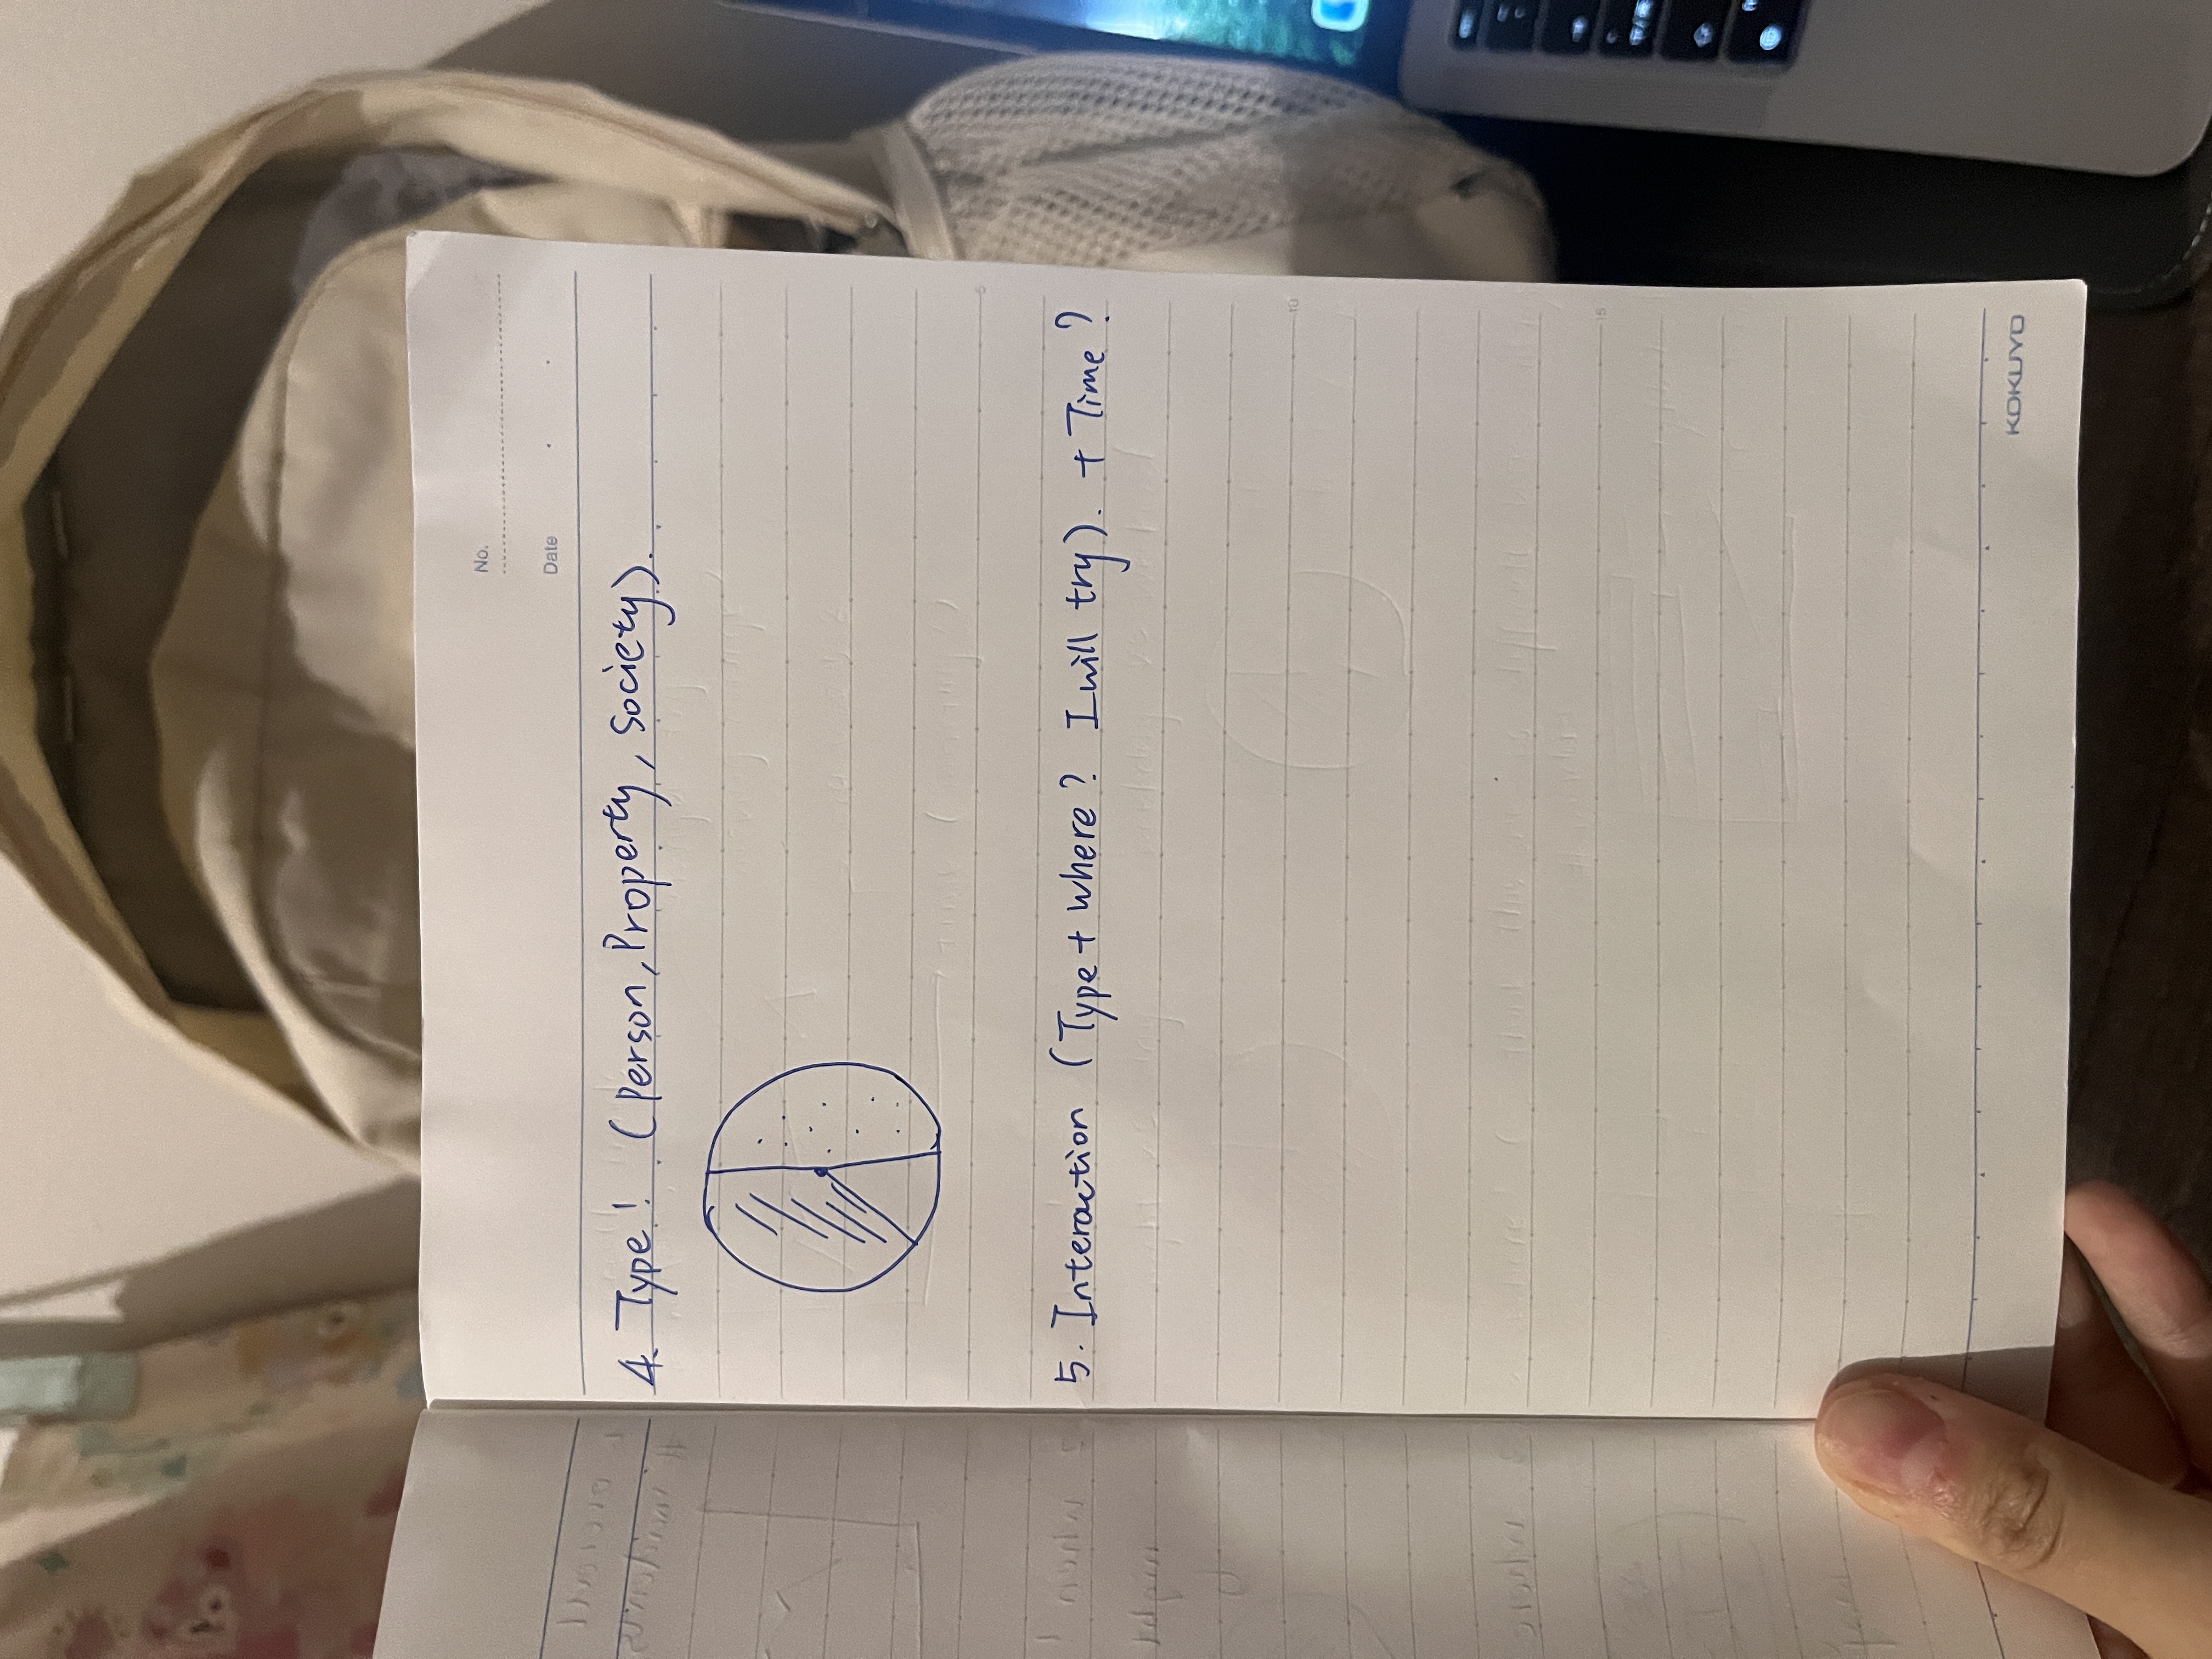 No.
Date
4. Type! (Person, Property, Society).
5
5. Interaction (Type + where? I will try). + Time?
10
15
KOKUYO